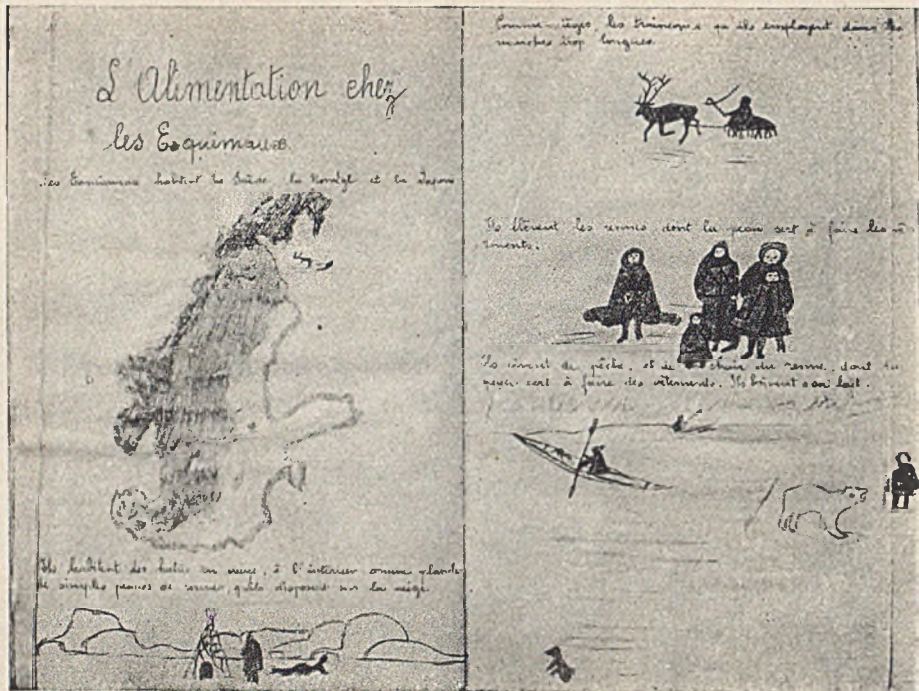 L'Alimentation chez
les Esquimaux
Les Esquimaux habitent la Suède, la et la
Ils habitent des huttes en neige, à l'intérieur comme
de simples peaux de rennes, qu'ils disposent sur la neige.
Comme les traîneaux qu'ils employent dans les
marches trop longues.
Ils élèvent les rennes dont la peau sert à faire les vê
tements.
Ils vivent de pêche, et de chair du renne, dont la
sert à faire des vêtements. Ils boivent son lait.